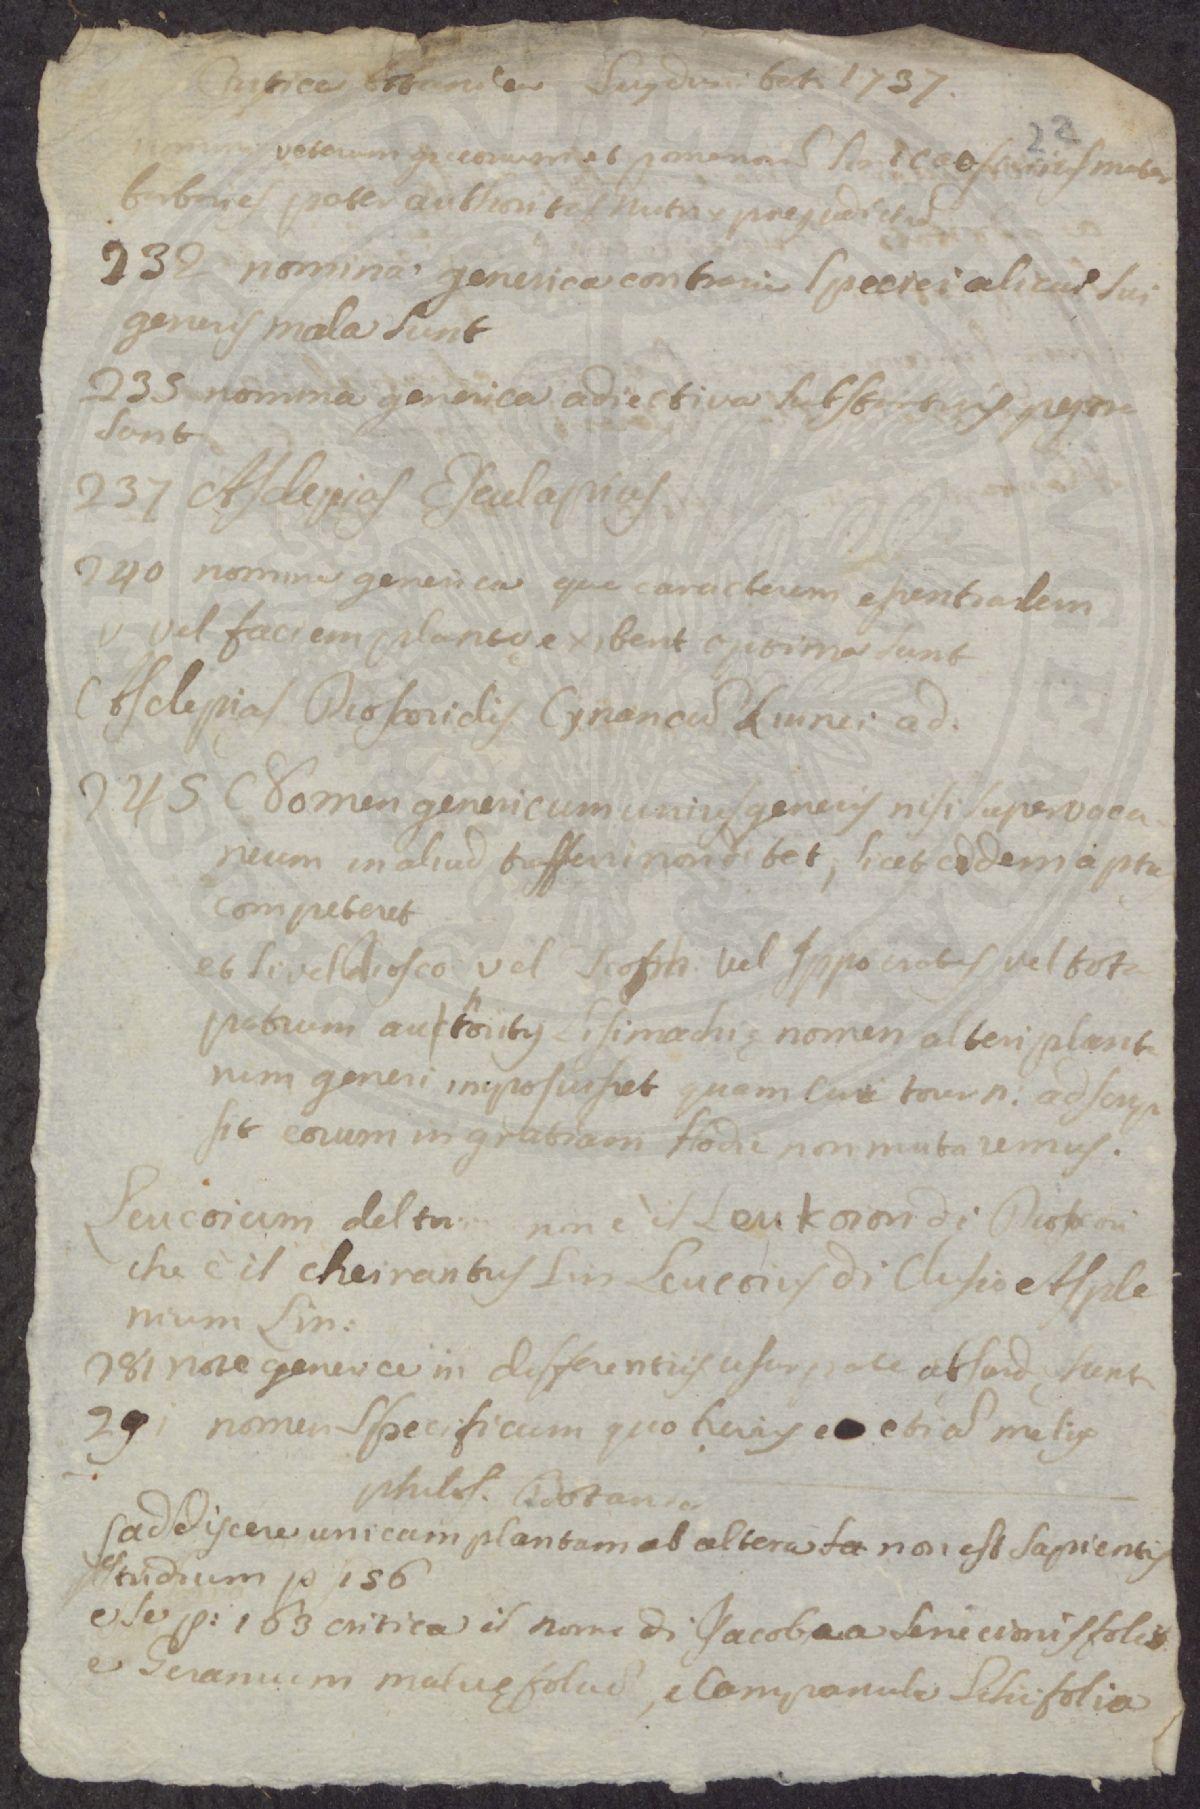 Critica botanica Lugduni bat. 1737.
22
veterum grecorum et romanorũ
barbaries pater authoritas nutrix prejudiciũ
232 nomina generica contraria speciei alicui sui
generis mala sunt
235 nomina generica adiectiva substantivis pejora
sunt
237 Asclepias Esculapius
240 nomina generica que caracterem essentialem
vel faciem plantę exibent optima sunt
Asclepias Dioscoridis Cynancũ Linnei ad.
245 Nomen genericum unius generis nisi supervaca
neum in aliud trasferri non debet, licet eidem aptiu
competeret
et si vel Diosco vel Teoph vel Ippocrates vel tota
patrum authoritas Lisimachię nomen alteri planta
rum generi imposuisset quam cui tourn. adscrip
sit eorum in gratiam hodie non mutaremus.
Leucoium del tourn non è il Leukoion di Dioscori
che è il cheirantus Lin Leucoius di Clusio e Asple
nium Lin:
281 note generice in differentiis usurpate absurdę sunt
291 nomen specificum quo brevius eo etiã melius
philos. Botanica
addiscere unicam plantam ab altera non est sapientis
studium p 156
e se p: 163 critica il nome di Jacobaea senecionis folio
e Geranium malvę foliũ, e Campanula folia